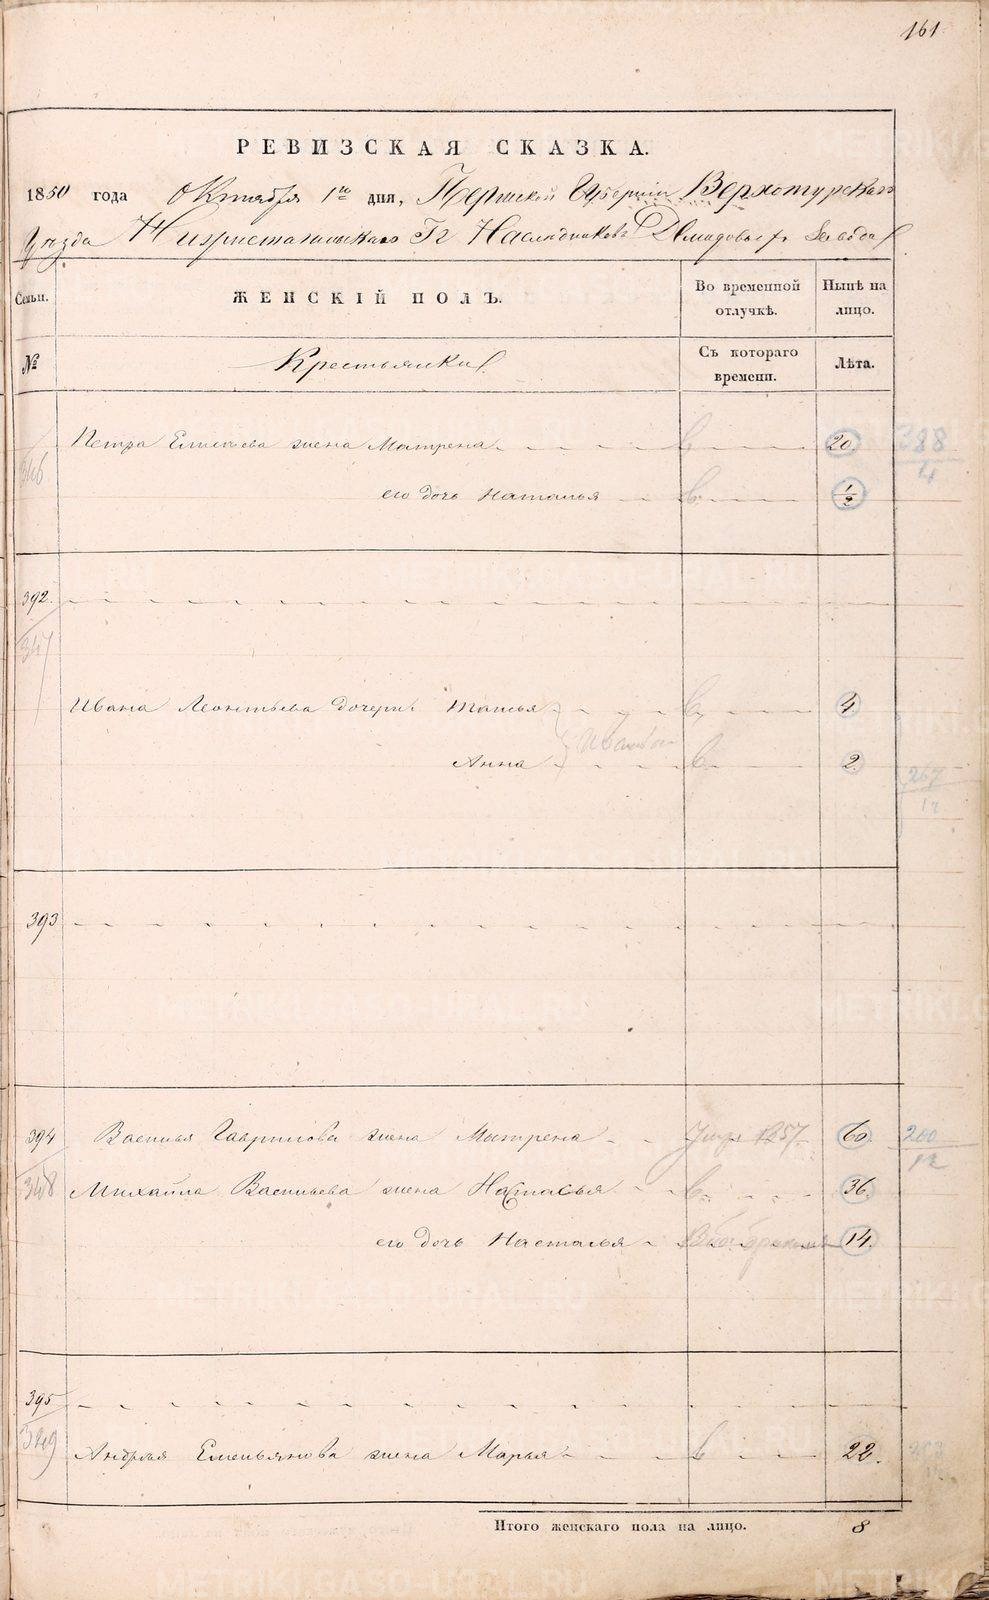 161
РЕВИЗСКАЯ СКАЗКА.
1850 года Октября 1го дня, Пермской Губернии Верхотурскаго
Уезда Нижнетагильскаго Гг Наследниковъ Демидовыхъ Завода
Семьи. ЖЕНСКІЙ ПОЛЪ. Во временной отлучкѣ. Нынѣ на лицо.
№ Крестьянки Съ котораго времени. Лѣта.
Петра Елисѣева жена Матрена 20. 388/4
346
его дочь Наталья 1/2
392
347
Ивана Леонтьева дочери: Таисья 4
Анна 2 267/12
393
394 Василья Гаврилова жена Матрена 1857. 60. 200/12
348 Михайла Васильева жена Настасья 36.
его дочь Наталья 14.
395
349 Андрея Емельянова жена Марья 22.
Итого женскаго пола на лицо. 8
METRIKI.GASO-URAL.RU